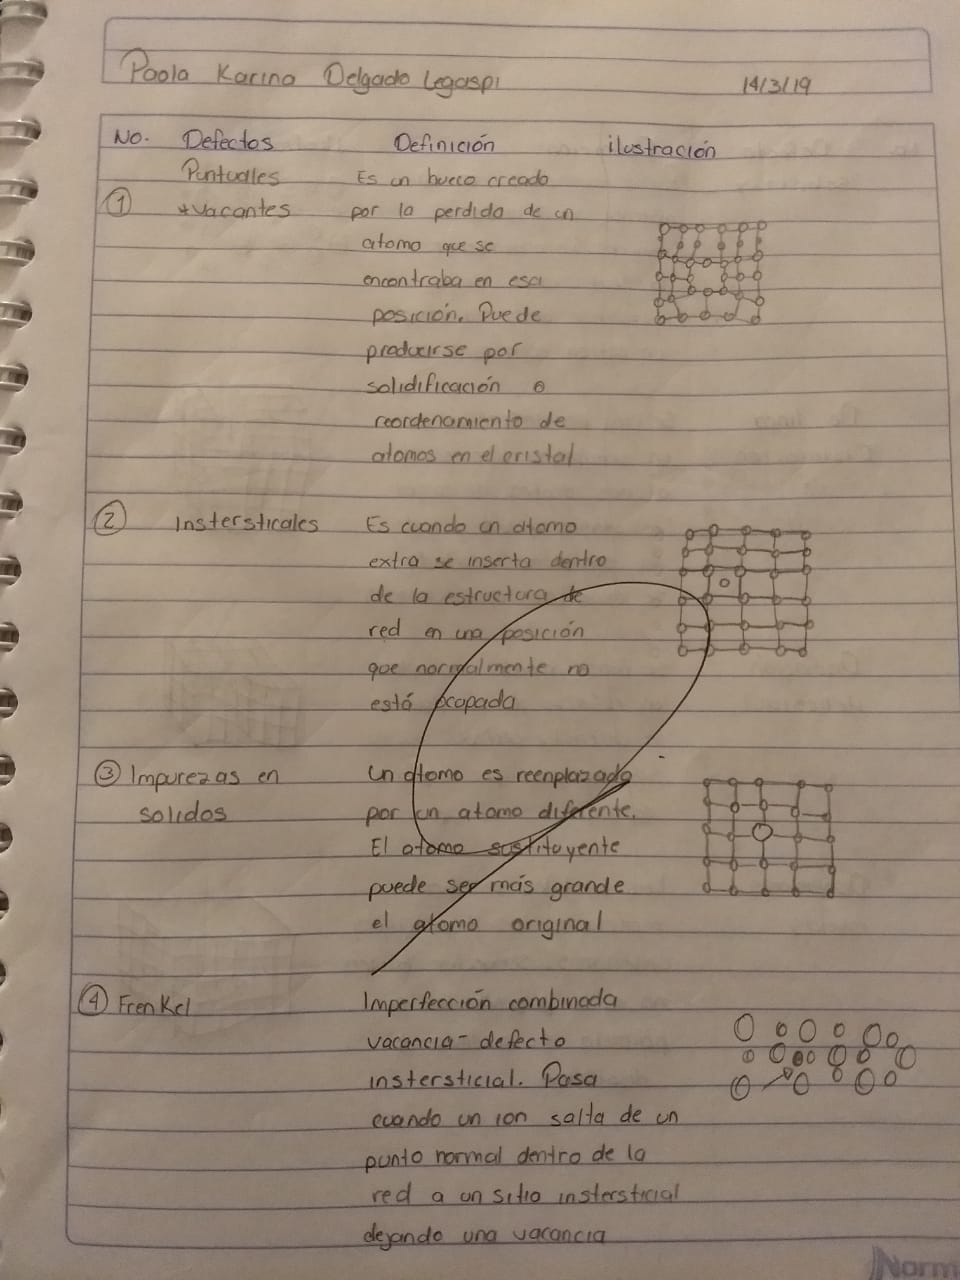 Paola Karina Delgado Legaspi 14/3/19
No. Defectos Definición ilustración
Puntuales Es un hueco creado
① +Vacantes por la perdida de un
atomo que se
encontraba en esa
posición. Puede
producirse por
solidificación o
reordenamiento de
atomos en el cristal
② Instersticales Es cuando un atomo
extra se inserta dentro
de la estructura de
red en una posición
que normalmente no
está ocupada
③ Impurezas en un atomo es reenplazado
solidos por un atomo diferente.
El atomo sustituyente
puede ser más grande
el atomo original
④ Frenkel Imperfección combinada
vacancia-defecto
instersticial. Pasa
cuando un ion salta de un
punto normal dentro de la
red a un sitio instersticial
dejando una vacancia
Norm